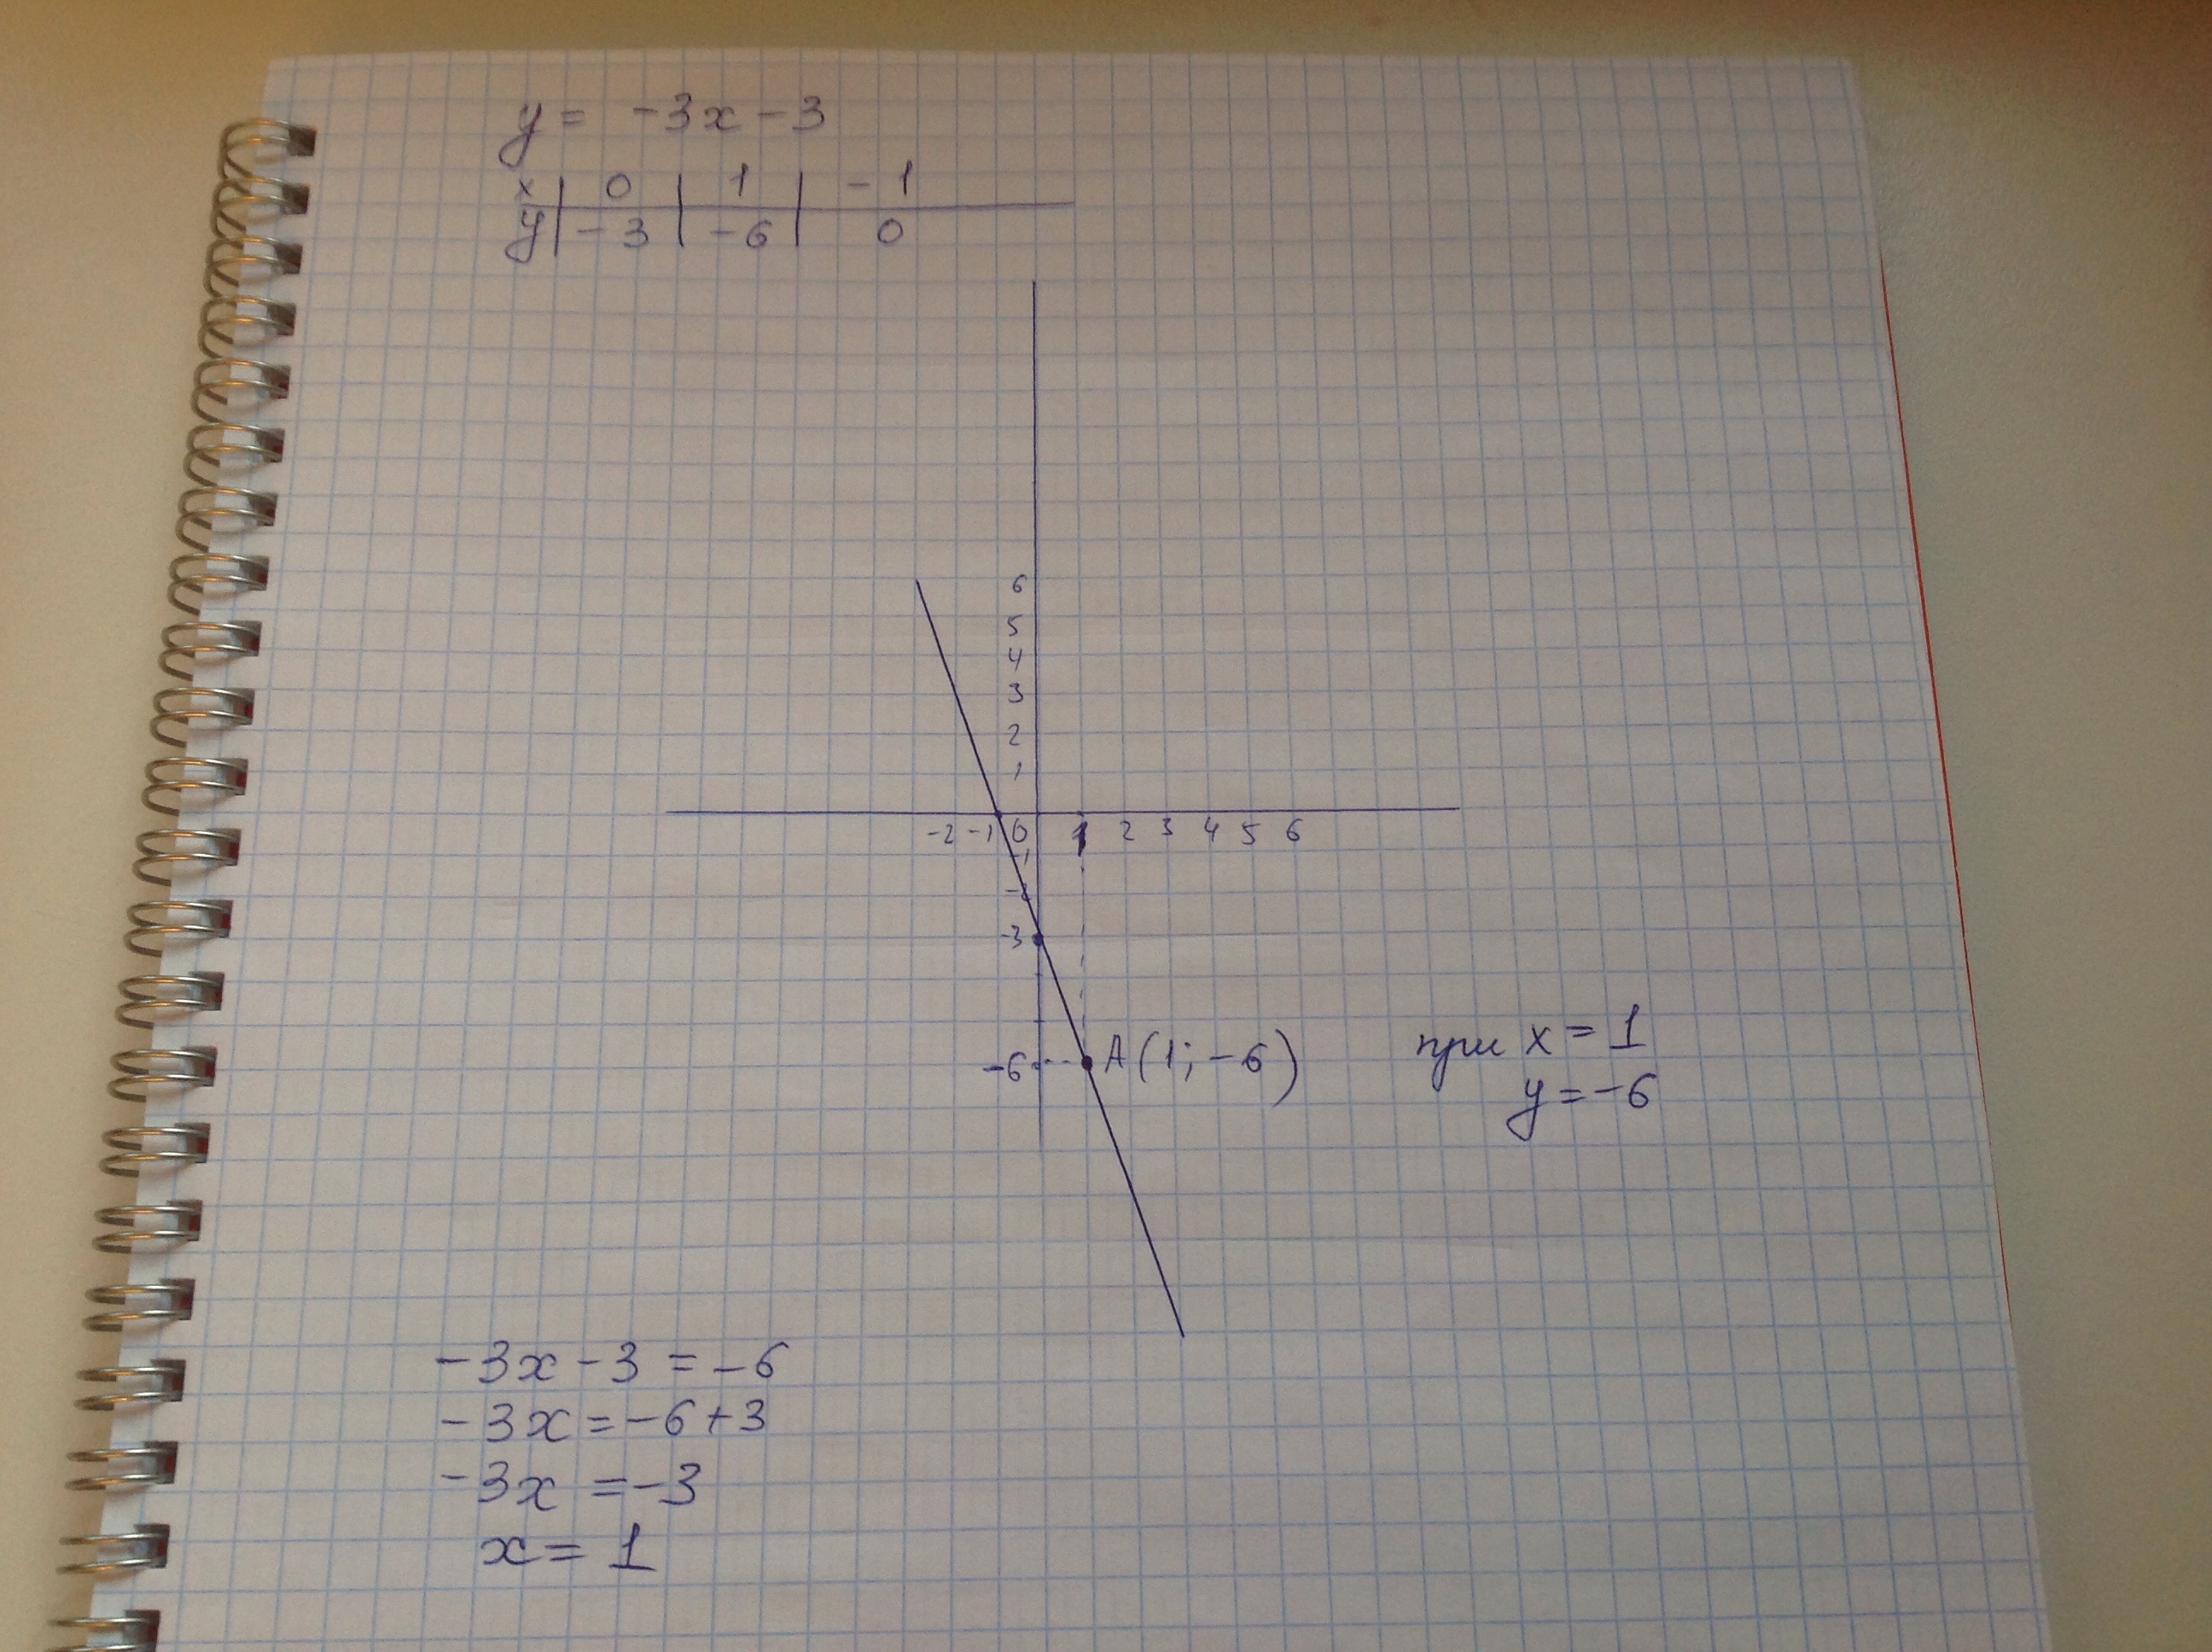 y = -3x - 3
x | 0 | 1 | -1
y | -3 | -6 | 0
6
5
4
3
2
1
-2 -1 0 1 2 3 4 5 6
-1
-3
-6 A(1; -6)
при x = 1
y = -6
-3x - 3 = -6
-3x = -6 + 3
-3x = -3
x = 1